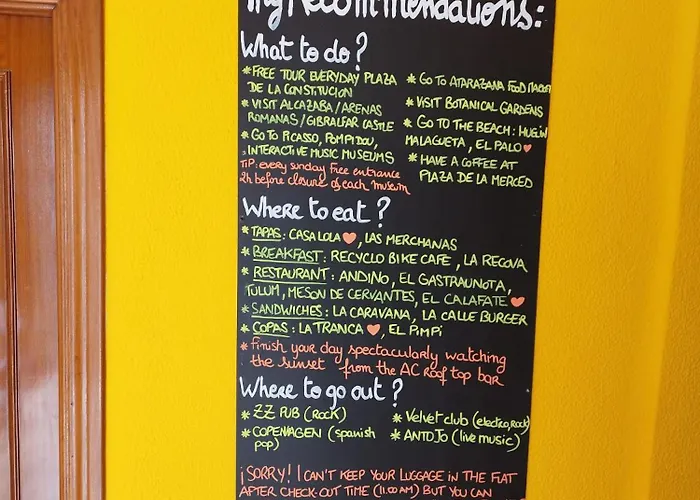 My Recommendations:
What to do?
* FREE TOUR EVERYDAY PLAZA
DE LA CONSTITUCION
* VISIT ALCAZABA/ARENAS
ROMANAS/GIBRALFAR CASTLE
* GO TO PICASSO, POMPIDOU,
INTERACTIVE MUSIC MUSEUMS
TIP: every sunday free entrance
2h before closure of each museum
* GO TO ATARAZANA FOOD MARKET
* VISIT BOTANICAL GARDENS
* GO TO THE BEACH: HUELIN
MALAGUETA, EL PALO ♥
* HAVE A COFFEE AT
PLAZA DE LA MERCED
Where to eat?
* TAPAS: CASA LOLA ♥, LAS MERCHANAS
* BREAKFAST: RECYCLO BIKE CAFE, LA RECOVA
* RESTAURANT: ANDINO, EL GASTRAUNOTA,
TULUM, MESON DE CERVANTES, EL CALAFATE ♥
* SANDWICHES: LA CARAVANA, LA CALLE BURGER
* COPAS: LA TRANCA ♥, EL PIMPI
* Finish your day spectacularly watching
the sunset from the AC Roof top bar
Where to go out?
* ZZ PUB (ROCK)
* COPENHAGEN (spanish
pop)
* Velvet club (electro, rock)
* ANTOJO (live music)
¡SORRY! I CAN'T KEEP YOUR LUGGAGE IN THE FLAT
AFTER CHECK-OUT TIME (11.00AM) BUT YOU CAN